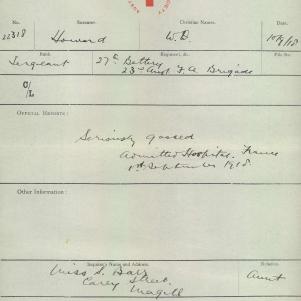 No. Surname. Christian Names.
22318 Howard W.D. 10/9/18
Rank. Regiment, &c. File No.
Sergeant 27th Battery
23rd Aust F.A. Brigade
C/L
OFFICIAL REPORTS:
Seriously gassed
Admitted Hospital. France
1st September 1918.
Other Information:
Inquirer's Name and Address. Relation.
Miss S.
Carey Street, Aunt
Magill